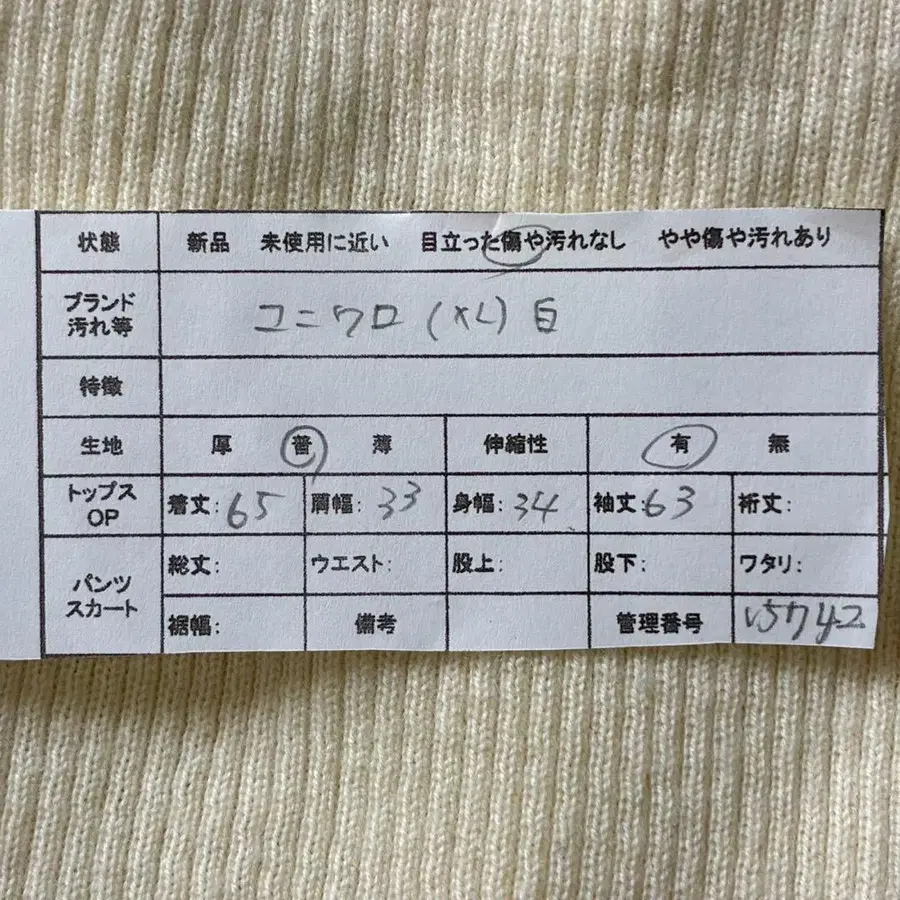 状態 新品 未使用に近い 目立った傷や汚れなし やや傷や汚れあり
ブランド
汚れ等
ユニクロ (XL) 白
特徴
生地 厚 普 薄 伸縮性 有 無
トップス
OP
着丈: 65 肩幅: 33 身幅: 34 袖丈: 63 裄丈:
パンツ
スカート
総丈: ウエスト: 股上: 股下: ワタリ:
裾幅: 備考 管理番号 V5742